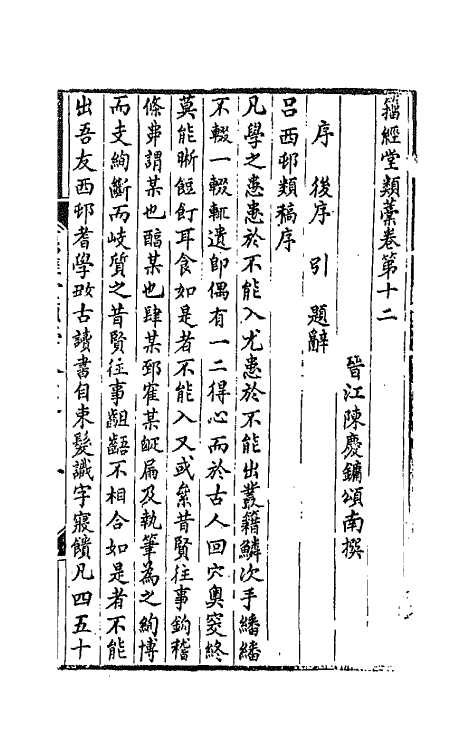 籀經堂類藁卷第十二
晉江陳慶鏞頌南撰
序 後序 引 題辭
呂西邨類稿序
凡學之患患於不能入尤患於不能出叢籍鱗次手繙繙
不輟一輟輒遺即偶有一二得心而於古人回穴奧窔終
莫能晰餖飣耳食如是者不能入又或纍昔賢往事鉤稽
條弗謂某也醇某也肆某郅隺某疵扁及執筆為之絢博
而支絢斷而岐質之昔賢往事齟齬不相合如是者不能
出吾友西邨耆學攷古讀書自束髮識字寢饋凡四五十